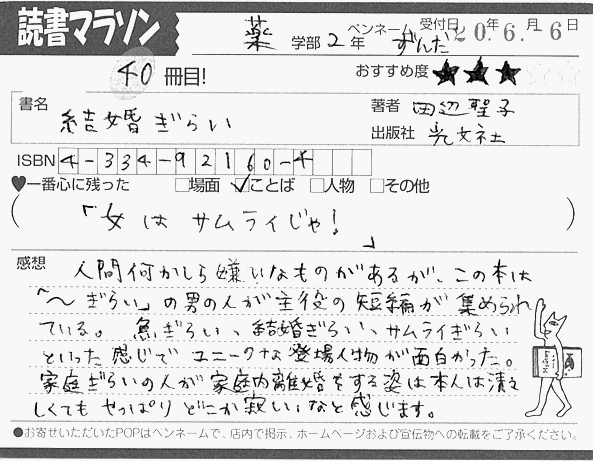 読書マラソン
薬 学部 2 年 ペンネーム ずんだ 受付日 20年6月-6日
40 冊目! おすすめ度 ★★★☆☆
書名 結婚ぎらい 著者 田辺聖子
出版社 光文社
ISBN 4-334-92160-4
♥一番心に残った □場面 ☑ことば □人物 □その他
(「女は サムライじゃ!」)
感想 人間何かしら嫌いなものがあるが、この本は
「〜ぎらい」の男の人が主役の短編が集められ
ている。魚ぎらい、結婚ぎらい、サムライぎらい
といった感じでユニークな登場人物が面白かった。
家庭ぎらいの人が家庭内離婚をする姿は本人は清々
しくてもやっぱりどこか寂しいなと感じます。
●お寄せいただいたPOPはペンネームで、店内で掲示、ホームページおよび宣伝物への転載をご了承ください。